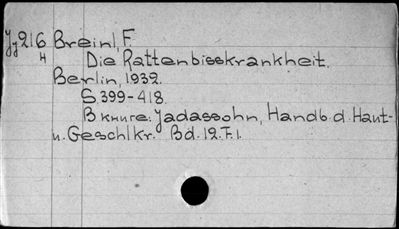 Jj216 Breinl, F.
H
Die Rattenbisskrankheit.
Berlin, 1932.
S 399-418.
В книге: Jadassohn, Handb. d. Haut-
u. Geschlkr. Bd. 12. T. 1.